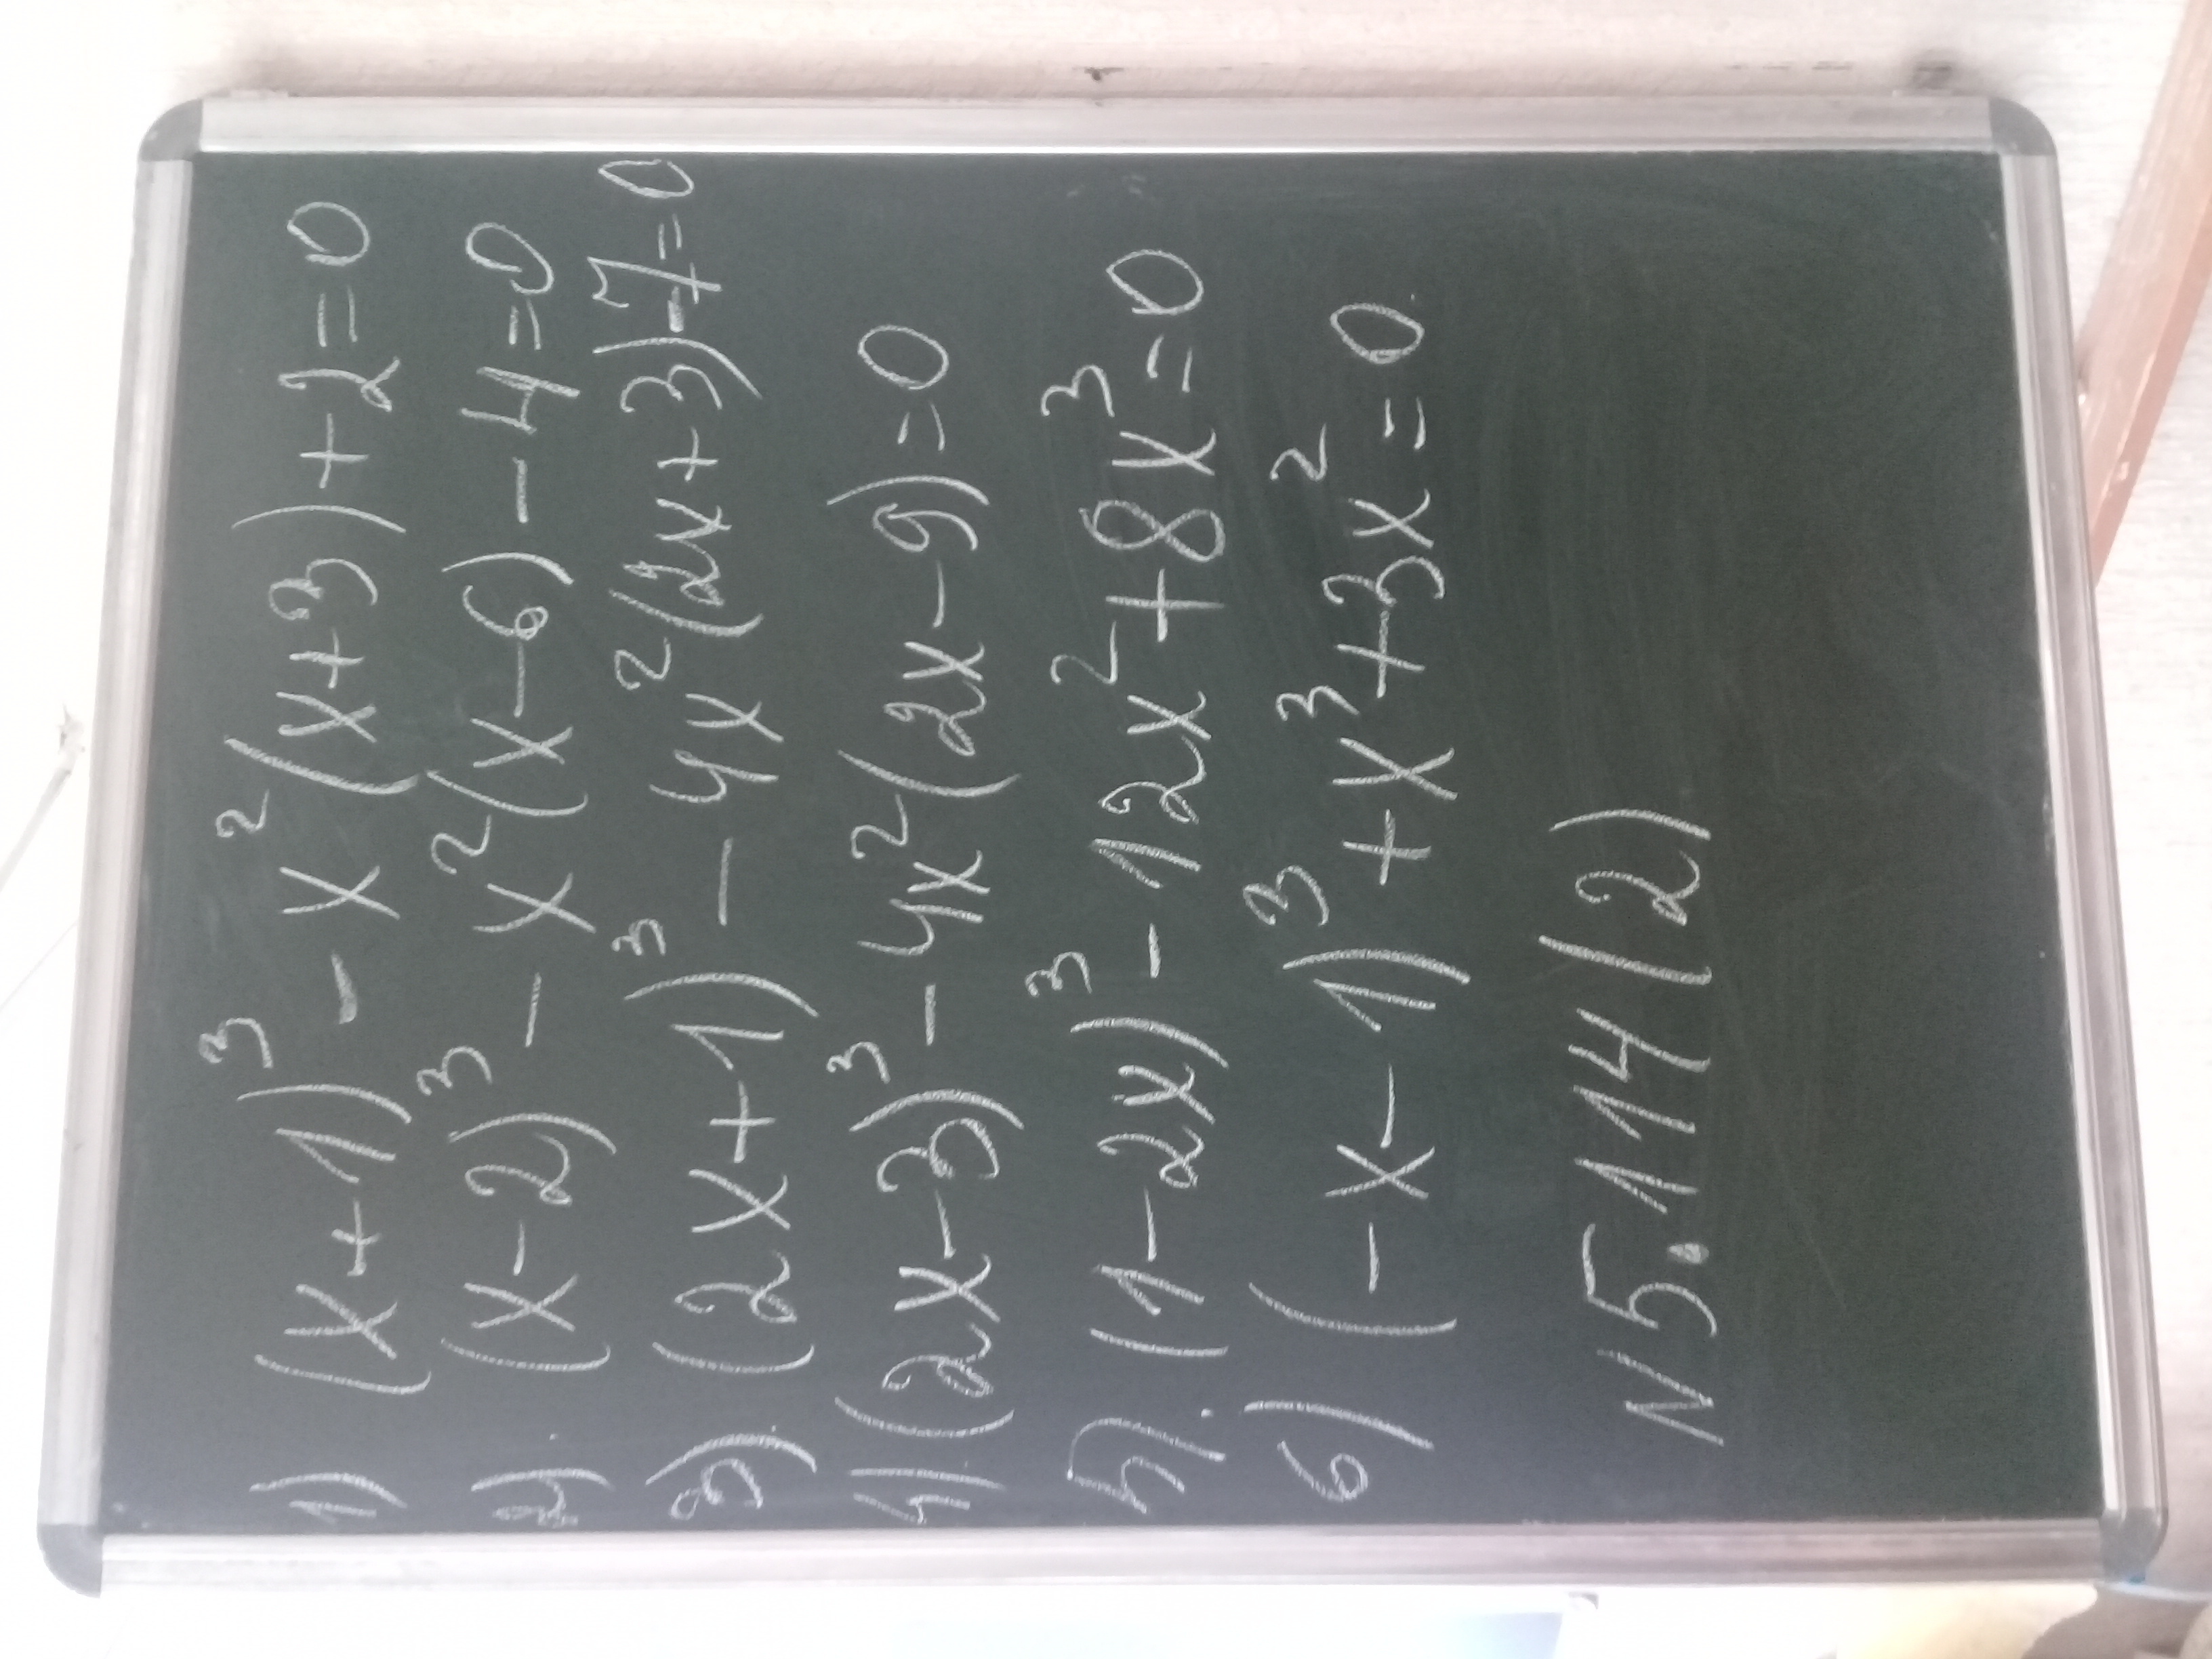 1) (x+1)³ - x²(x+3)+2=0
2). (x-2)³ - x²(x-6)-4=0
3). (2x+1)³ - 4x²(2x+3)-7=0
4). (2x-3)³ - 4x²(2x-9)=0
5). (1-2x)³ - 12x²+8x³=0
6) (-x-1)³ + x³+3x²=0
N5.114(2)